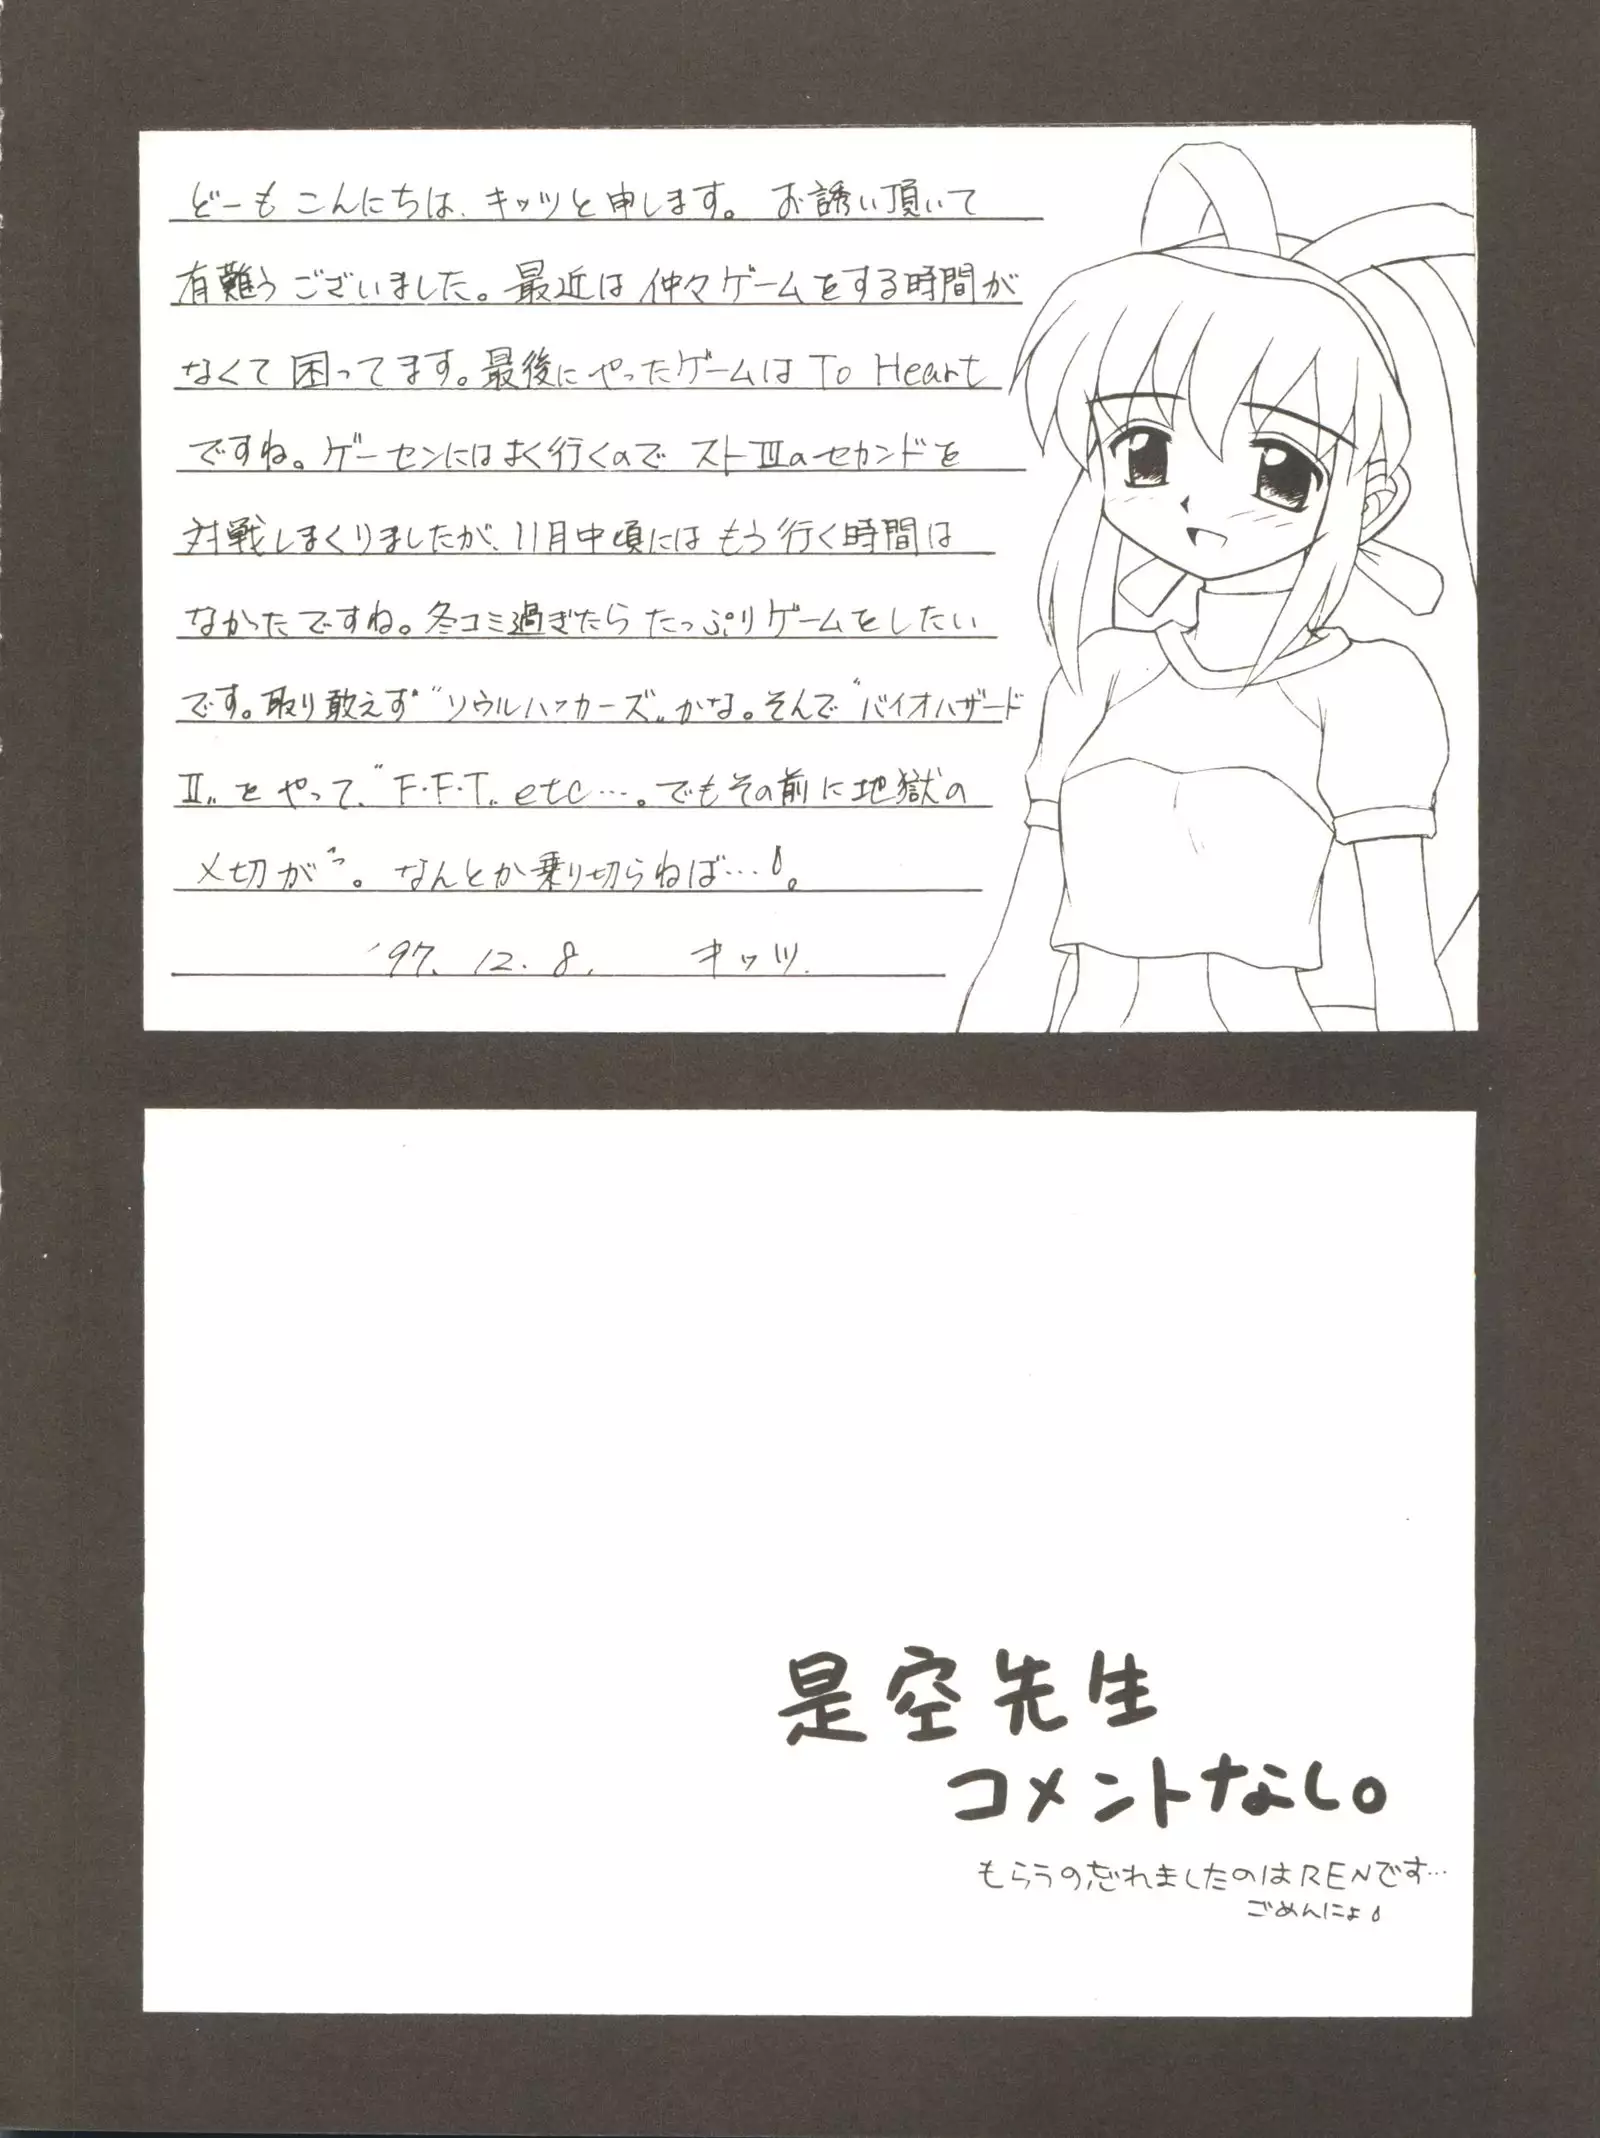 どーもこんにちは、キッツと申します。お誘い頂いて
有難うございました。最近は仲々ゲームをする時間が
なくて困ってます。最後にやったゲームは To Heart
ですね。ゲーセンにはよく行くので ストⅢのセカンドを
対戦しまくりましたが、11月中頃にはもう行く時間は
なかったですね。冬コミ過ぎたらたっぷりゲームをしたい
です。取り敢えず〝ソウルハッカーズ〟かな。そんで〝バイオハザード
Ⅱ〟をやって、〝F・F・T〟etc…。でもその前に地獄の
〆切がっ。なんとか乗り切らねば…。
'97. 12. 8. キッツ.
是空先生
コメントなし。
もらうの忘れましたのはRENです…
ごめんにょ